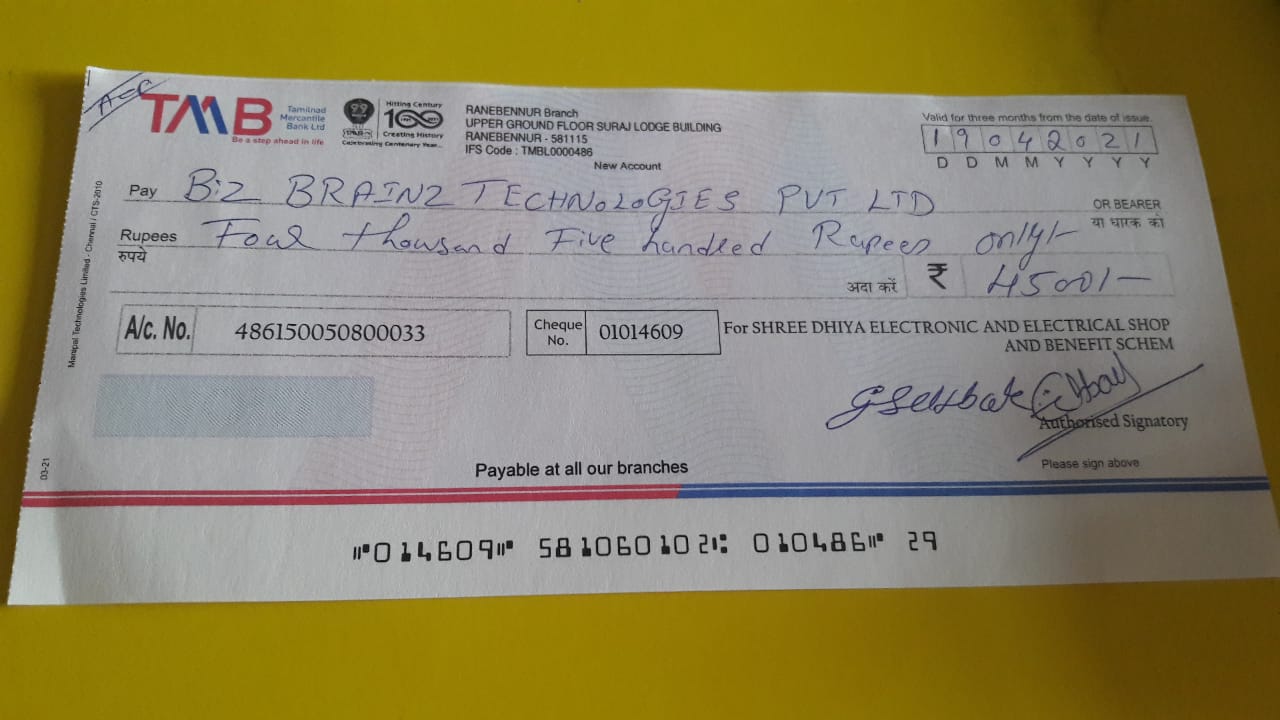 A=C
TMB
Tamilnad
Mercantile
Bank Ltd
Be a step ahead in life
Hitting Century
100
Creating History
Celebrating Centenary Year...
RANEBENNUR Branch
UPPER GROUND FLOOR SURAJ LODGE BUILDING
RANEBENNUR - 581115
IFS Code : TMBL0000486
New Account
Valid for three months from the date of issue.
19042021
D D M M Y Y Y Y
Pay Biz BRAINZ TECHNOLOGIES PVT LTD
OR BEARER
या धारक को
Rupees Four thousand Five handred Rupees only/-
रुपये
अदा करें ₹ 4500/-
A/c. No. 486150050800033
Cheque No. 01014609
For SHREE DHIYA ELECTRONIC AND ELECTRICAL SHOP
AND BENEFIT SCHEM
Authorised Signatory
Please sign above
Payable at all our branches
Manipal Technologies Limited - Chennai / CTS-2010
03-21
⑈014609⑈ 581060102⑆ 010486⑈ 29